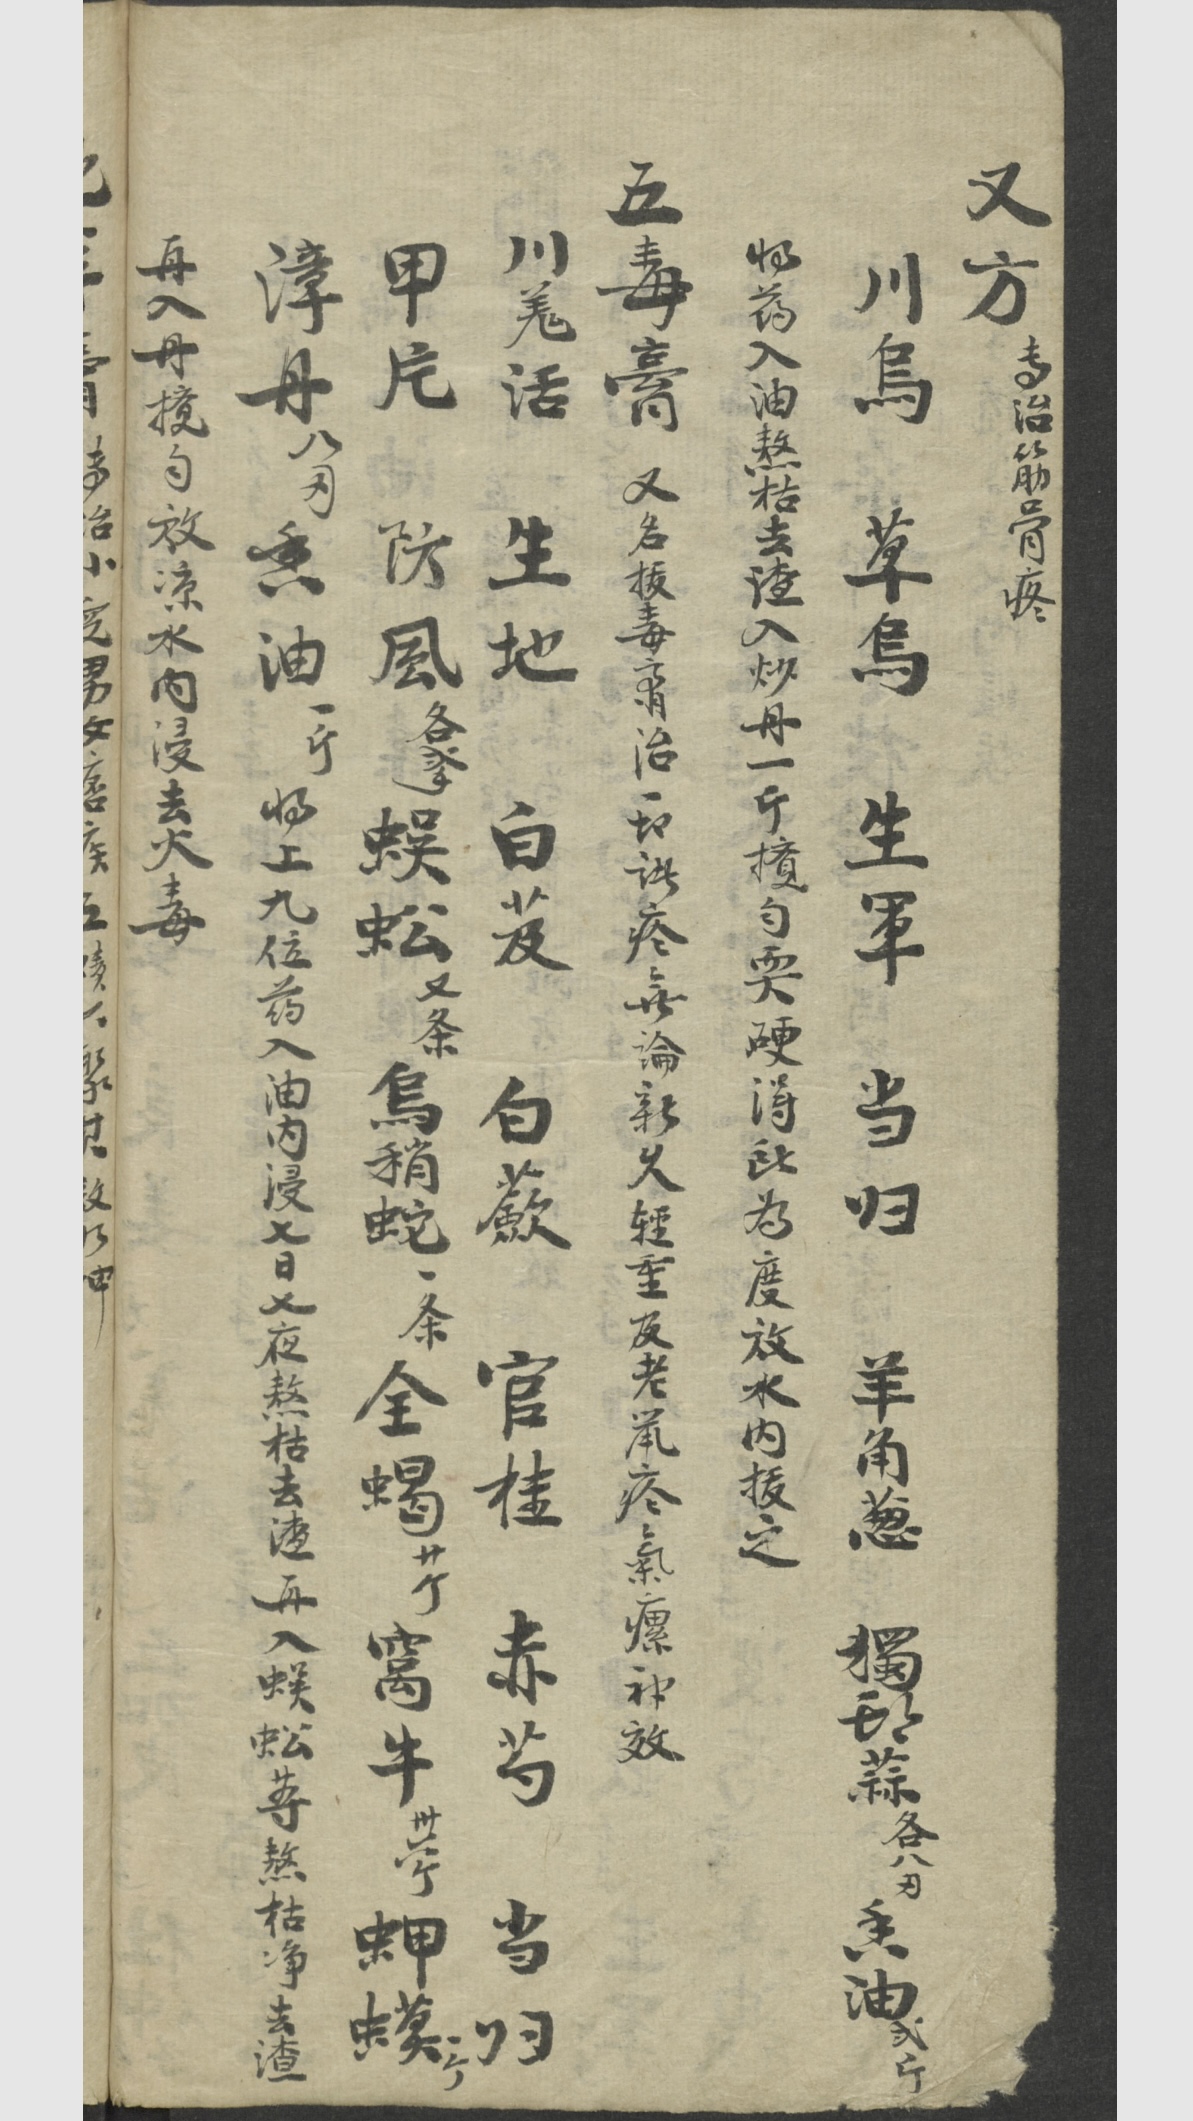 又方 专治筋骨疼
川烏 草烏 生軍 当归 羊角葱 獨頭蒜 各八刄 香油 弍斤
将药入油熬枯去渣入炒丹一斤攪匀耎硬得此為度放水内拔之
五毒膏 又名拔毒膏治一切諸疼無論新久輕重及老鼠疼氣瘰神效
川羌活 生地 白芨 白蕨 官桂 赤芍 当归
甲片 防風 各 蜈蚣 又条 烏稍蛇 一条 全蝎 廿个 窩牛 卅个 蛤蟆 二个
漳丹 八刄 香油 一斤 将上九位药入油内浸七日七夜熬枯去渣再入蜈蚣等熬枯净去渣
再入丹攪匀放凉水内浸去火毒
膏 专治小児男女痞疾五積六聚其效如神